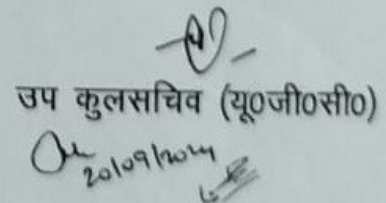 उप कुलसचिव (यू०जी०सी०)
20/09/2024